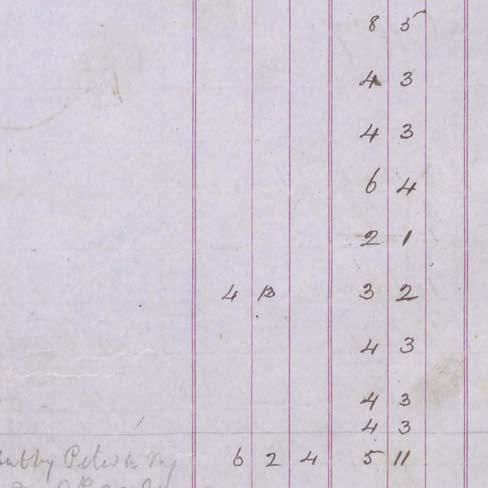 8 5
4 3
4 3
6 4
2 1
4 13 3 2
4 3
4 3
4 3
6 2 4 5 11